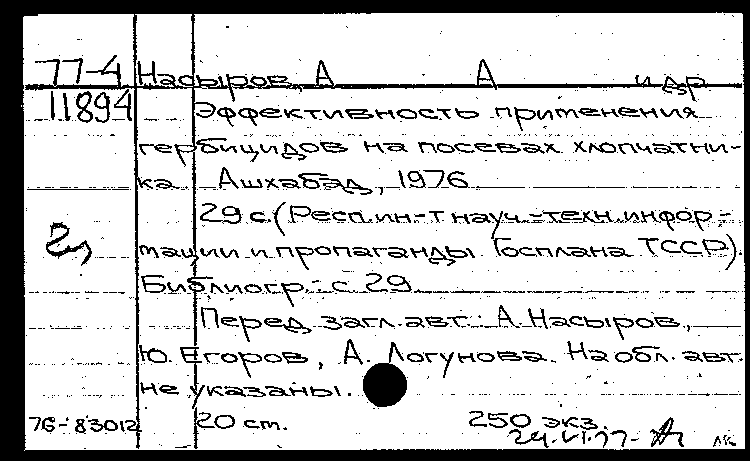 77-4 Насыров, А А и др
11894 Эффективность применения
гербицидов на посевах хлопчатни-
ка Ашхабад, 1976
29 с. (Респ. ин-т науч.-техн. инфор-
мации и пропаганды Госплана ТССР).
Библиогр.: с 29
Перед загл. авт.: А. Насыров,
Ю. Егоров, А. Логунова. На обл. авт.
не указаны.
76-83012 20 ст. 250 экз.
24.VI.77-